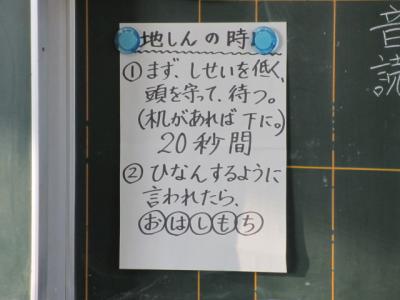 地しんの時
①まず、しせいを低く、
頭を守って、待つ。
(机があれば下に。)
20秒間
②ひなんするように
言われたら、
おはしもち
音読